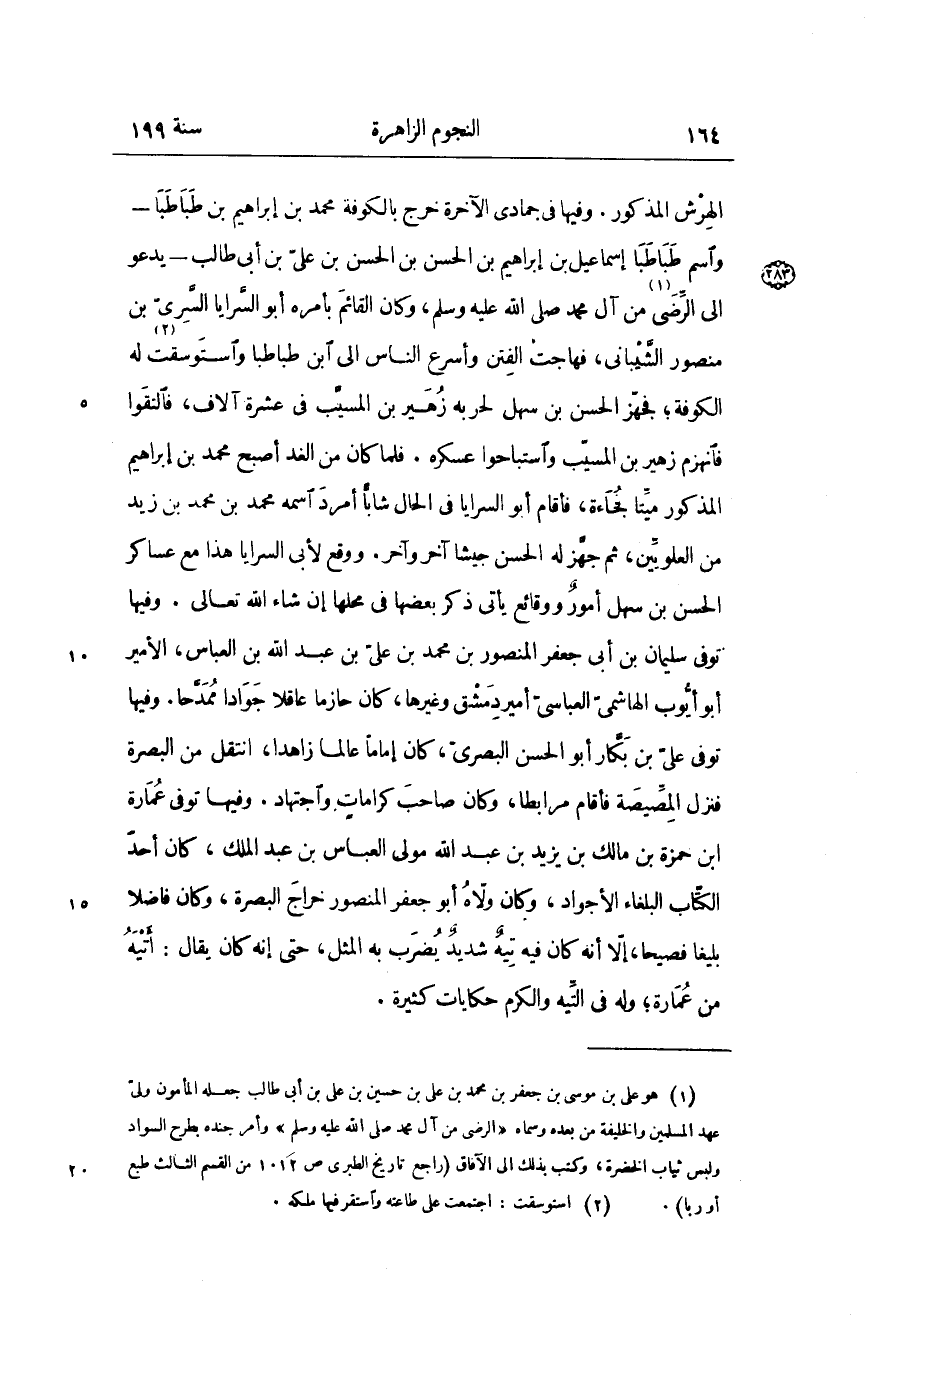 ١٦٤ النجوم الزاهرة سنة ١٩٩
الهِرْش المذكور . وفيها فى جمادى الآخرة خرج بالكوفة محمد بن إبراهيم بن طَبَاطَبَا —
وٱسم طَبَاطَبَا إسماعيل بن إبراهيم بن الحسن بن الحسن بن علىّ بن أبى طالب — يدعو
٢٨٣
الى الرِّضَى (١) من آل محمد صلى الله عليه وسلم، وكان القائمَ بأمره أبو السَّرايا السَّرِىّ بن
منصور الشَّيْبانى، فهاجتْ الفِتن وأسرع النـاس الى ٱبن طباطبا وٱستَوسقت (٢) له
الكوفة؛ فجهّز الحسن بن سهل لحربه زُهَـير بن المسيَّب فى عشرة آلاف، فٱلتقَوا ٥
فٱنهزم زهير بن المسيّب وٱستباحوا عسكره . فلما كان من الغد أصبح محمد بن إبراهيم
المذكور ميِّتا بُفَاءة، فأقام أبو السرايا فى الحال شابًّا أمردَ ٱسمه محمد بن محمد بن زيد
من العلويِّين، ثم جهَّز له الحسن جيشا آخر وآخر. ووقع لأبى السرايا هذا مع عساكر
الحسن بن سهل أمورٌ ووقائع يأتى ذكر بعضها فى محلها إن شاء الله تعـالى . وفيها
توفى سليمان بن أبى جعفر المنصور بن محمد بن علىّ بن عبـد الله بن العباس، الأمير ١٠
أبو أيُّوب الهاشمىّ العباسىّ أمير دِمَشْق وغيرها، كان حازما عاقلا جَوَادا مُمَدَّحا. وفيها
توفى علىّ بن بَكَّار أبو الحسن البصرىّ، كان إماماً عالمـا زاهدا، انتقل من البصرة
فنزل المِصِّيصَة فأقام مرابطا، وكان صاحبَ كراماتٍ وٱجتهاد . وفيهـا توفى عُمَارة
ابن حمزة بن مالك بن يزيد بن عبـد الله مولى العبـاس بن عبد الملك ، كان أحدَ
الكُتّاب البلغاء الأجواد ، وكان ولّاهُ أبو جعفر المنصور خراجَ البصرة ، وكان فاضلا ١٥
بليغا فصيحا، إلّا أنه كان فيه تِيهٌ شديدٌ يُضرَب به المثل، حتى إنه كان يقال : أَتْيَهُ
من عُمَارة؛ وله فى التِّيه والكرم حكايات كثيرة .
(١) هو على بن موسى بن جعفر بن محمد بن على بن حسين بن على بن أبى طالب جعـله المأمون ولىّ
عهد المسلمين والخليفة من بعده وسماه «الرضى من آل محمد صلى الله عليه وسلم» وأمر جنده بطرح السواد
ولبس ثياب الخضرة، وكتب بذلك الى الآفاق (راجع تاريخ الطبرى ص ١٠١٢ من القسم الثـالث طبع ٢٠
أوربا) . (٢) استوسقت : اجتمعت على طاعته وٱستقر فيها ملكه .